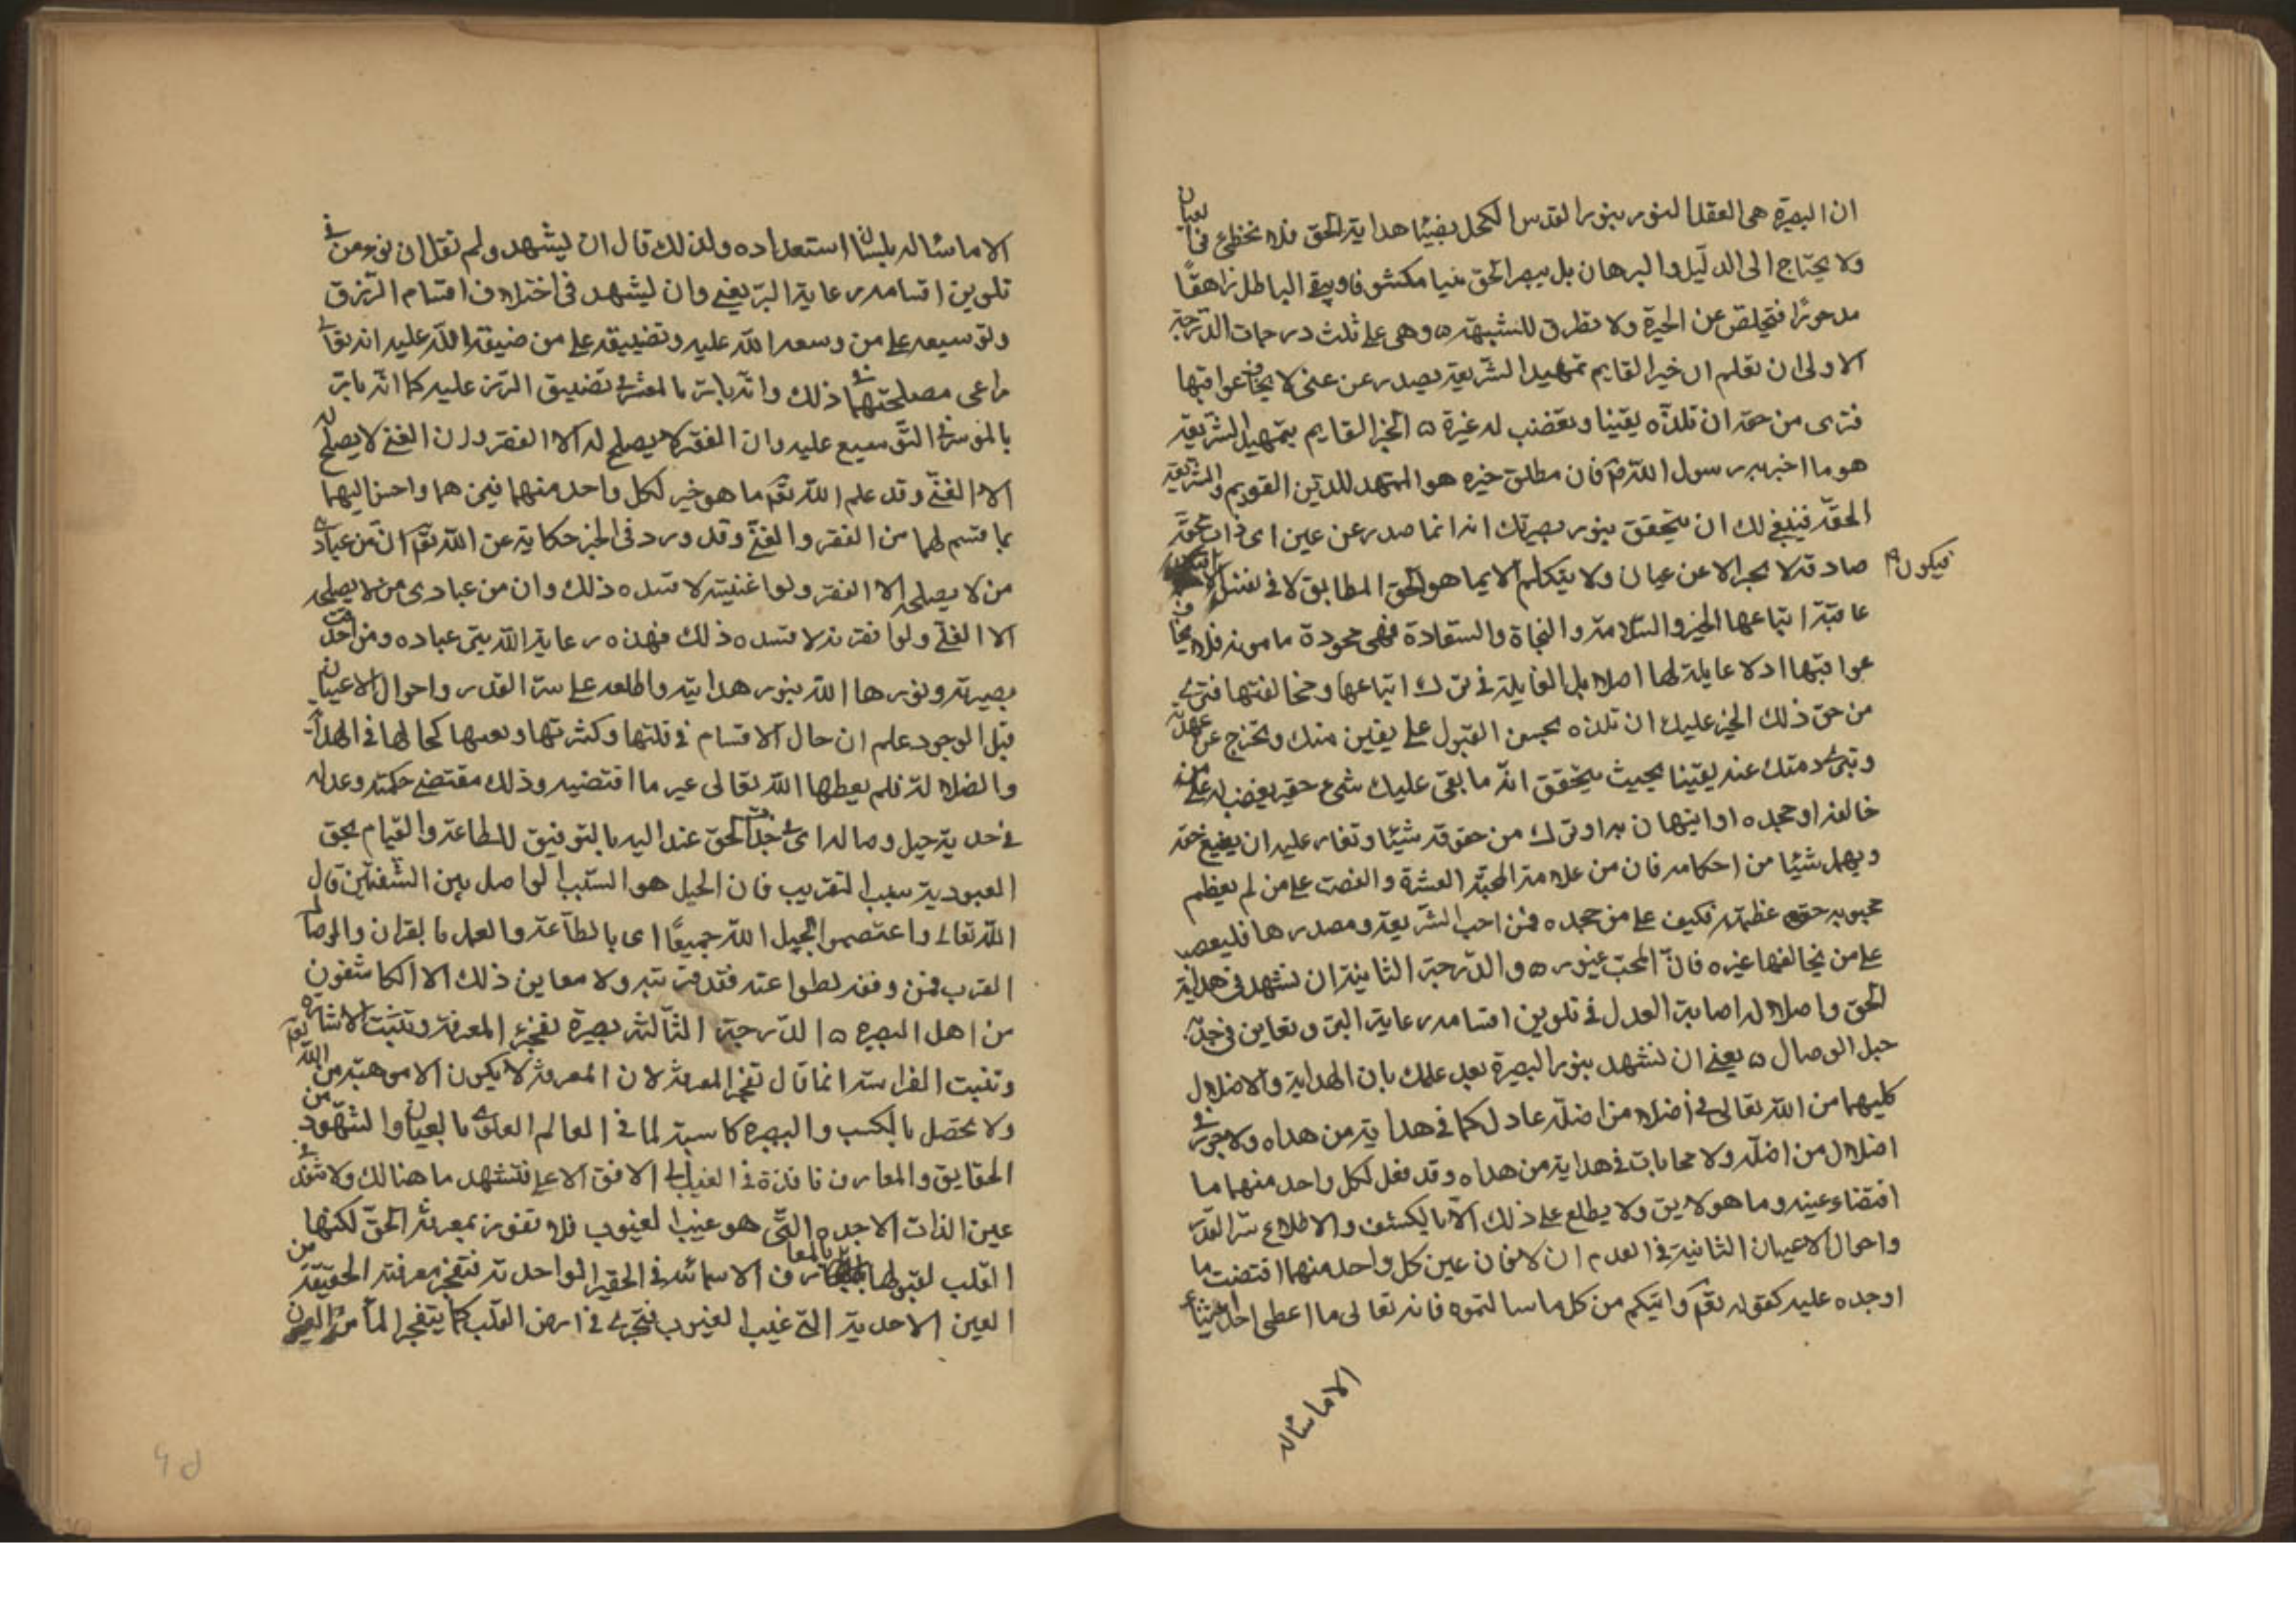 ان البصيرة هى العقل المنور بنور القدس المكحل بضياء هداية الحق فلا تخطئ فى العيان
ولا يحتاج الى الدليل والبرهان بل يبصر الحق مبيا مكشوفا وينفى الباطل زاهقا
مدحورا فتخلص عن الحيرة ولا تطرق للشبهة ٥ وهى على ثلث درجات الدرجة
الاولى ان تعلم ان خبر القايم بتمهيد الشريعة يصدر عن عين لا يخاف عواقبها
فترى من حقه ان تلذه يقينا وتغضب له غيرة ٥ الخبر القايم بتمهيد الشريعة
هو ما اخبر به رسول الله ص فان مطلق خبره هو الممهد للدين القويم والشريعة
الحقة فينبغى لك ان تتحقق بنور بصيرتك انه انما صدر عن عين اى ذات محقة
صادقة لا يخبر الا عن عيان ولا يتكلم الا بما هو الحق المطابق لا فى نفس الامر
فيكون
عاقبة اتباعها الخير والسلامة والنجاة والسعادة فهى محمودة مامونة فلا يخاف
عواقبها اذ لا غايلة لها اصلا بل الغايلة فى ترك اتباعها ومخالفتها فترى
من حق ذلك الخبر عليك ان تلذه بحسن القبول على يقين منك وتخرج عن عهدته
وتبرئ ذمتك عنه يقينا بحيث يتحقق انه ما بقى عليك شئ من حقه وتغضب له على من
خالفه او جحده او استهان به او ترك من حقوقه شيئا وتغار عليه ان يضيع حقه
ويهمل شيئا من احكامه فان من علامة المحبة الغيرة والغضب على من لم يعظم
محبوبه حق عظمته فكيف على من جحده فمن احب الشريعة ومصدرها فليغضب
على من يخالفها غيرة فان المحب غيور ٥ والدرجة الثانية ان تشهد فى هداية
الحق واضلاله اصابة العدل وفى تلوين اقسامه رعاية البر وتعاين فى جذبه
حبل الوصال ٥ يعنى ان تشهد بنور البصيرة بعد علمك بان الهداية والاضلال
كليهما من الله تعالى فى اضلا من اضله عادل كما فى هداية من هداه ولا يجور فى
اضلال من اضله ولا محابات فى هداية من هداه وقد فعل لكل واحد منهما ما
اقتضاء عينه وما هو لايق ولا يطلع على ذلك الا بالكشف والاطلاع سر القدر
واحوال الاعيان الثابتة فى العدم ان لا فان عين كل واحد منهما اقتضت ما
اوجده عليه كقوله تعم واتيكم من كل ما سالتموه فانه تعالى ما اعطى احدا شيئا
الا ما ساله
الا ما ساله بلسان استعداده ولذلك قال ان يشهد ولم نقل ان نؤمن فى
تلوين اقسامه رعاية البر يعنى وان يشهد فى اختلاف اقسام الرزق
وتوسيعه على من وسعه الله عليه وتضييقه على من ضيقه الله عليه انه تعالى
راعى مصلحتهما فى ذلك وانه بار بالمعسر فى تضييق الرزق عليه كما انه بار
بالموسر فى التوسيع عليه وان الفقير لا يصلح له الا الفقر وان الغنى لا يصلح له
الا الغنى وقد علم الله تعم ما هو خير لكل واحد منهما فيمن هما واحسن اليهما
بما قسم لهما من الفقر والغنى وقد ورد فى الخبر حكاية عن الله تعم ان من عبادى
من لا يصلحه الا الفقر ولو اغنيته لافسده ذلك وان من عبادى من لا يصلحه
الا الغنى ولو افقرته لافسده ذلك فهذه رعاية الله بين عباده ومن احدث
بصيرته ونورها الله بنور هدايته واطلعه على سر القدر واحوال الاعيان
قبل الوجود علم ان حال الاقسام فى قلتها وكثرتها وبعسها كحالها فى الهداية
والضلالة فلم يعطها الله تعالى غير ما اقتضيه وذلك مقتضى حكمته وعدله
فى جذبه حبل وصاله اى فى جذب الحق عنده اليه بالتوفيق للطاعة والقيام بحق
العبودية سبب التقريب فان الحبل هو السبب الواصل بين الشفتين قال
الله تعالى واعتصموا بحبل الله جميعا اى بالطاعة والعمل بالقران والوصال
القرب فمن وفقه لطواعته فقد قربته ولا معاين ذلك الا المكاشفون
من اهل البصيرة ٥ الدرجة الثالثة بصيرة تفجر المعرفة وتثبت الاشارة
وتنبت الفراسة انما قال تفجر المعرفة لان المعرفة لا يكون الا موهبة من الله تعم
ولا تحصل بالكسب والبصيرة كاسبة لما فى العالم العلوى بالعيان والشهود من
الحقايق والمعارف نافذة فى الغيب الى الافق الاعلى فتشهد ما هنالك ولا تنفذ فى
عين الذات الاحدية التى هو غيب الغيوب فلا تفوز بمعرفة الحق لكنها
القلب لقبولها بالمعارف الاسمائية فى الحقير الواحدية فتفجر معرفته الحقيقة من
العين الاحدية التى غيب الغيوب فتجرى فى ارض القلب كما يتفجر الماء من العيون